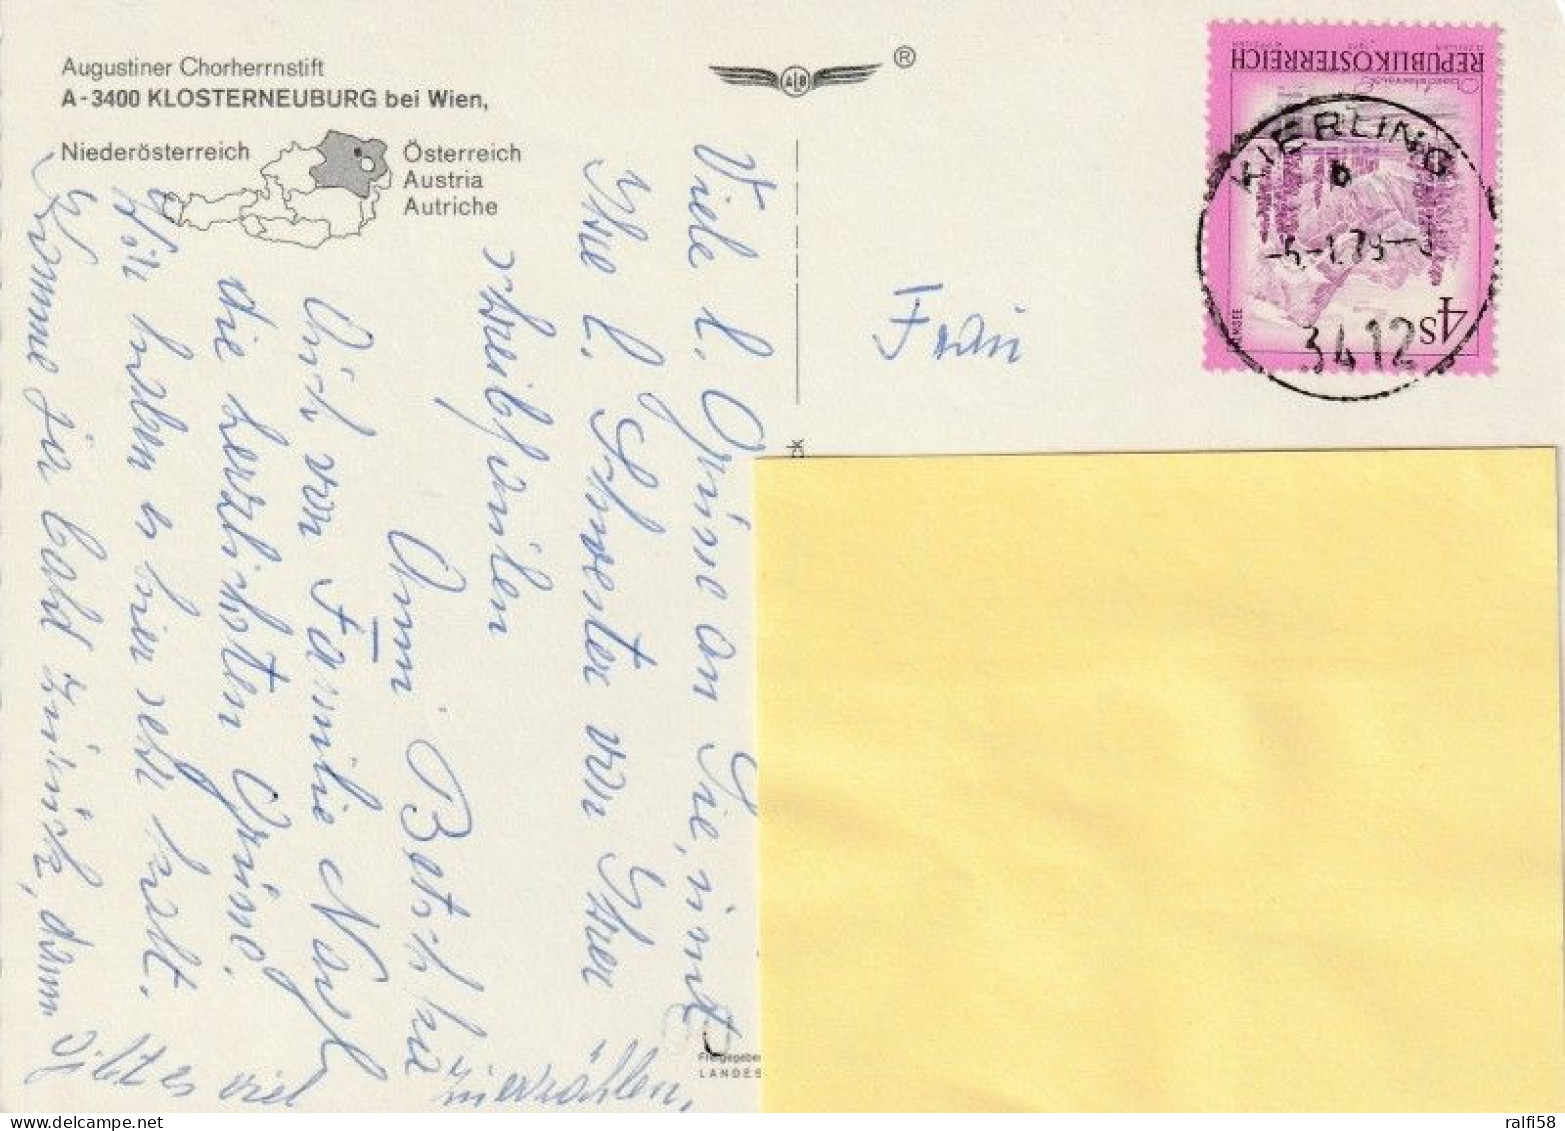 Augustiner Chorherrnstift
A-3400 KLOSTERNEUBURG bei Wien,
Niederösterreich
Österreich
Austria
Autriche
A B
®
REPUBLIK ÖSTERREICH
4S
KIERLING
b
3412
Frau
Viele l. Grüsse an Sie, und
Ihre l. Schwester von Ihrer
schreibfaulen
Anni
Auch von Familie
die herzlichsten Grüsse.
Wir haben es hier sehr kalt.
Komme ja bald zurück, dann
gibt es viel
zu erzählen.
Freigegeben
LANDES
ralfi58